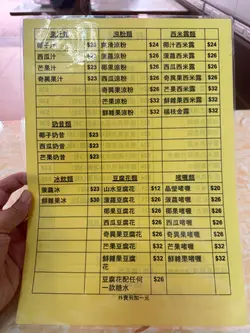 果汁類 涼粉類 西米露類
椰子汁 $23 爽滑涼粉 $24 椰汁西米露 $24
西瓜汁 $23 菠蘿涼粉 $26 菠蘿西米露 $26
芒果汁 $23 椰果涼粉 $26 椰果西米露 $26
奇異果汁 $23 西瓜涼粉 $26 西瓜西米露 $26
奇異果涼粉 $26 奇異果西米露 $26
芒果涼粉 $32 芒果西米露 $32
奶昔類 鮮雜果涼粉 $32 鮮雜果西米露 $32
椰子奶昔 $30 西米露 $32
西瓜奶昔 $30
芒果奶昔 $30
冰類 豆腐花類 啫喱類
菠蘿冰 $23 山水豆腐花 $12 晶瑩啫喱 $20
鮮雜果冰 $30 菠蘿豆腐花 $26 菠蘿啫喱 $26
椰果豆腐花 $26 椰果啫喱 $26
西瓜豆腐花 $26 西瓜啫喱 $26
奇異果豆腐花 $26 奇異果啫喱 $26
芒果豆腐花 $32 芒果啫喱 $32
鮮雜果豆腐花 $32 鮮雜果啫喱 $32
豆腐花配任何一款糖水 $26
外賣另加一元